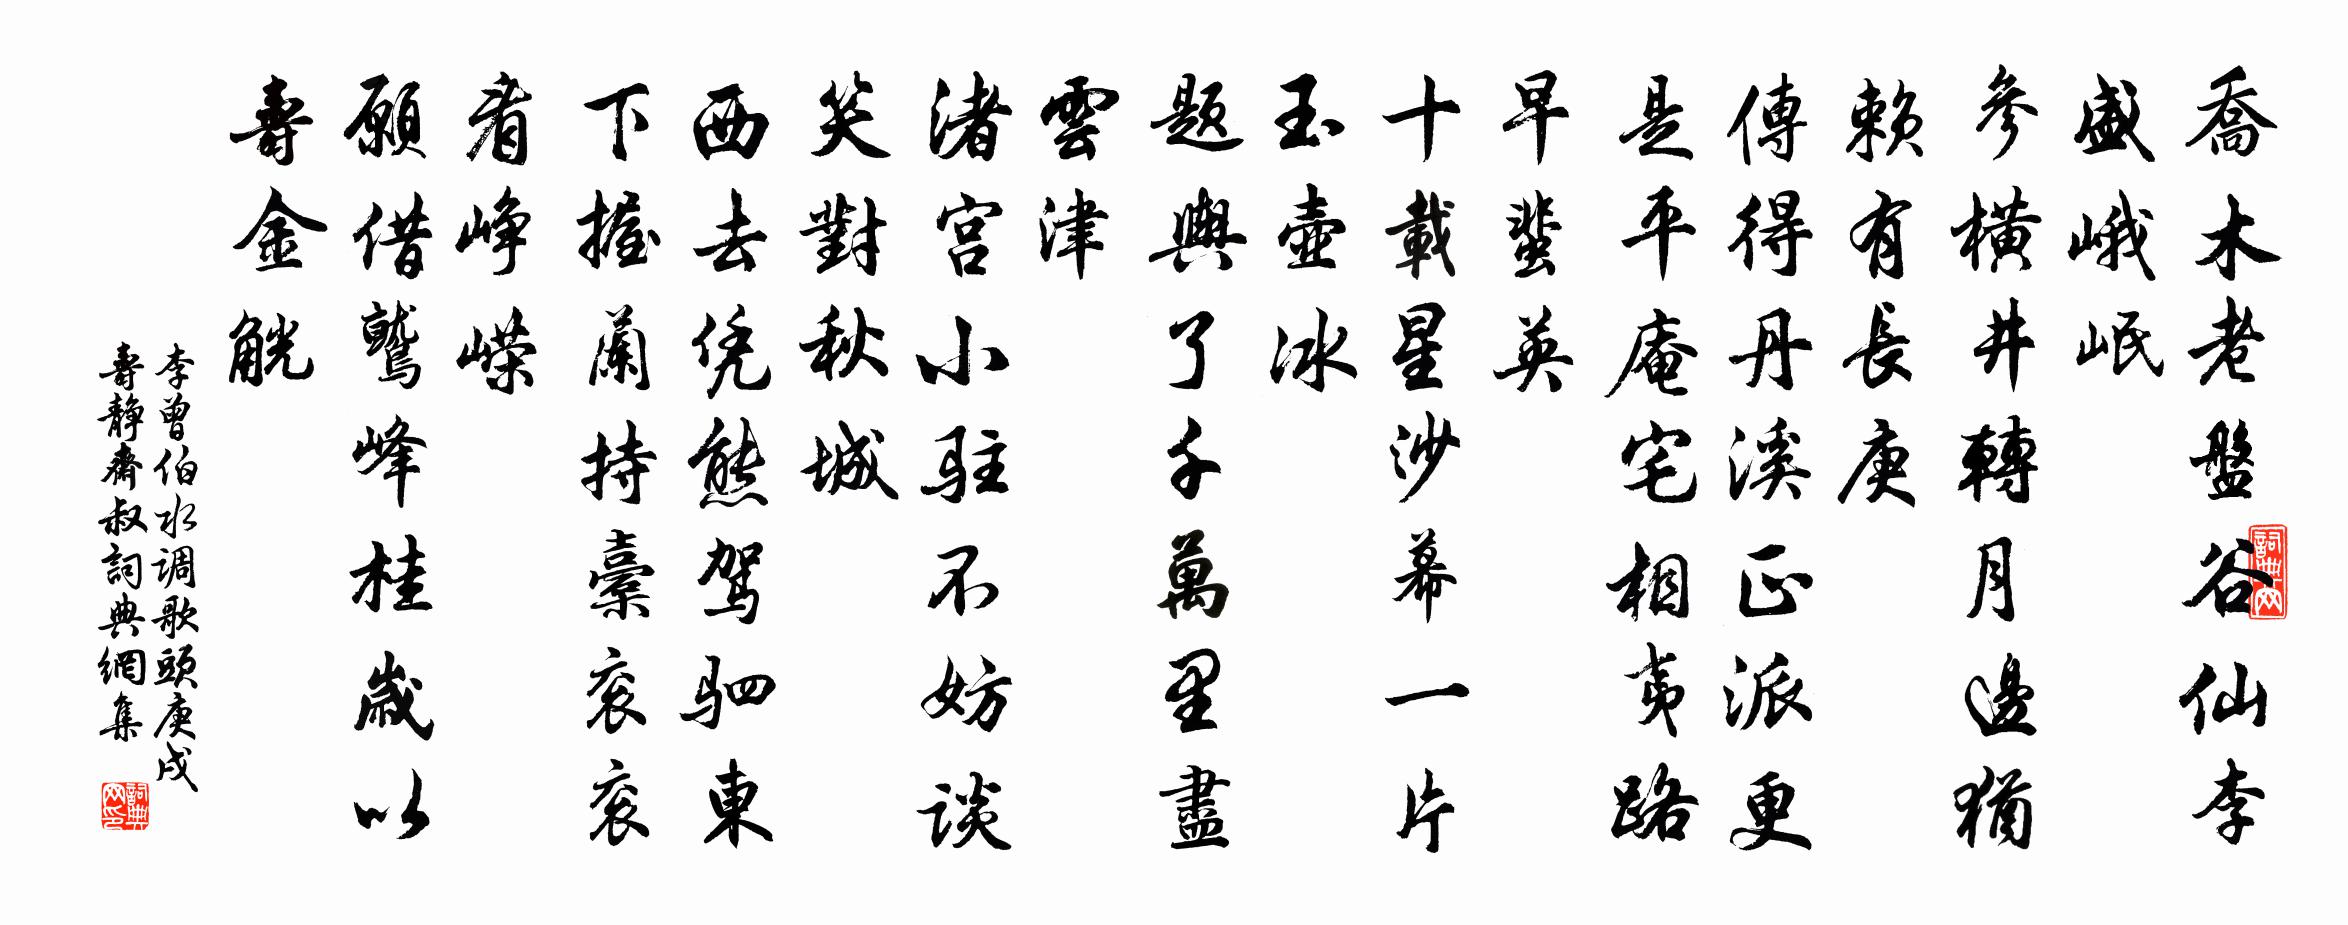 喬木老盤谷仙李
盛峨岷
參橫井轉月邊猶
賴有長庚
傳得丹溪正派更
是平庵宅相夷路
早蜚英
十載星沙幕一片
玉壺冰
題輿了千萬里盡
雲津
渚宮小駐不妨談
笑對秋城
西去凭熊駕驷東
下握蘭持橐衮衮
看崢嶸
願借鷲峰桂歲以
壽金觥
李曾伯水调歌頭庚戌
壽静齋叔詞典網集
詞典网
詞典网印